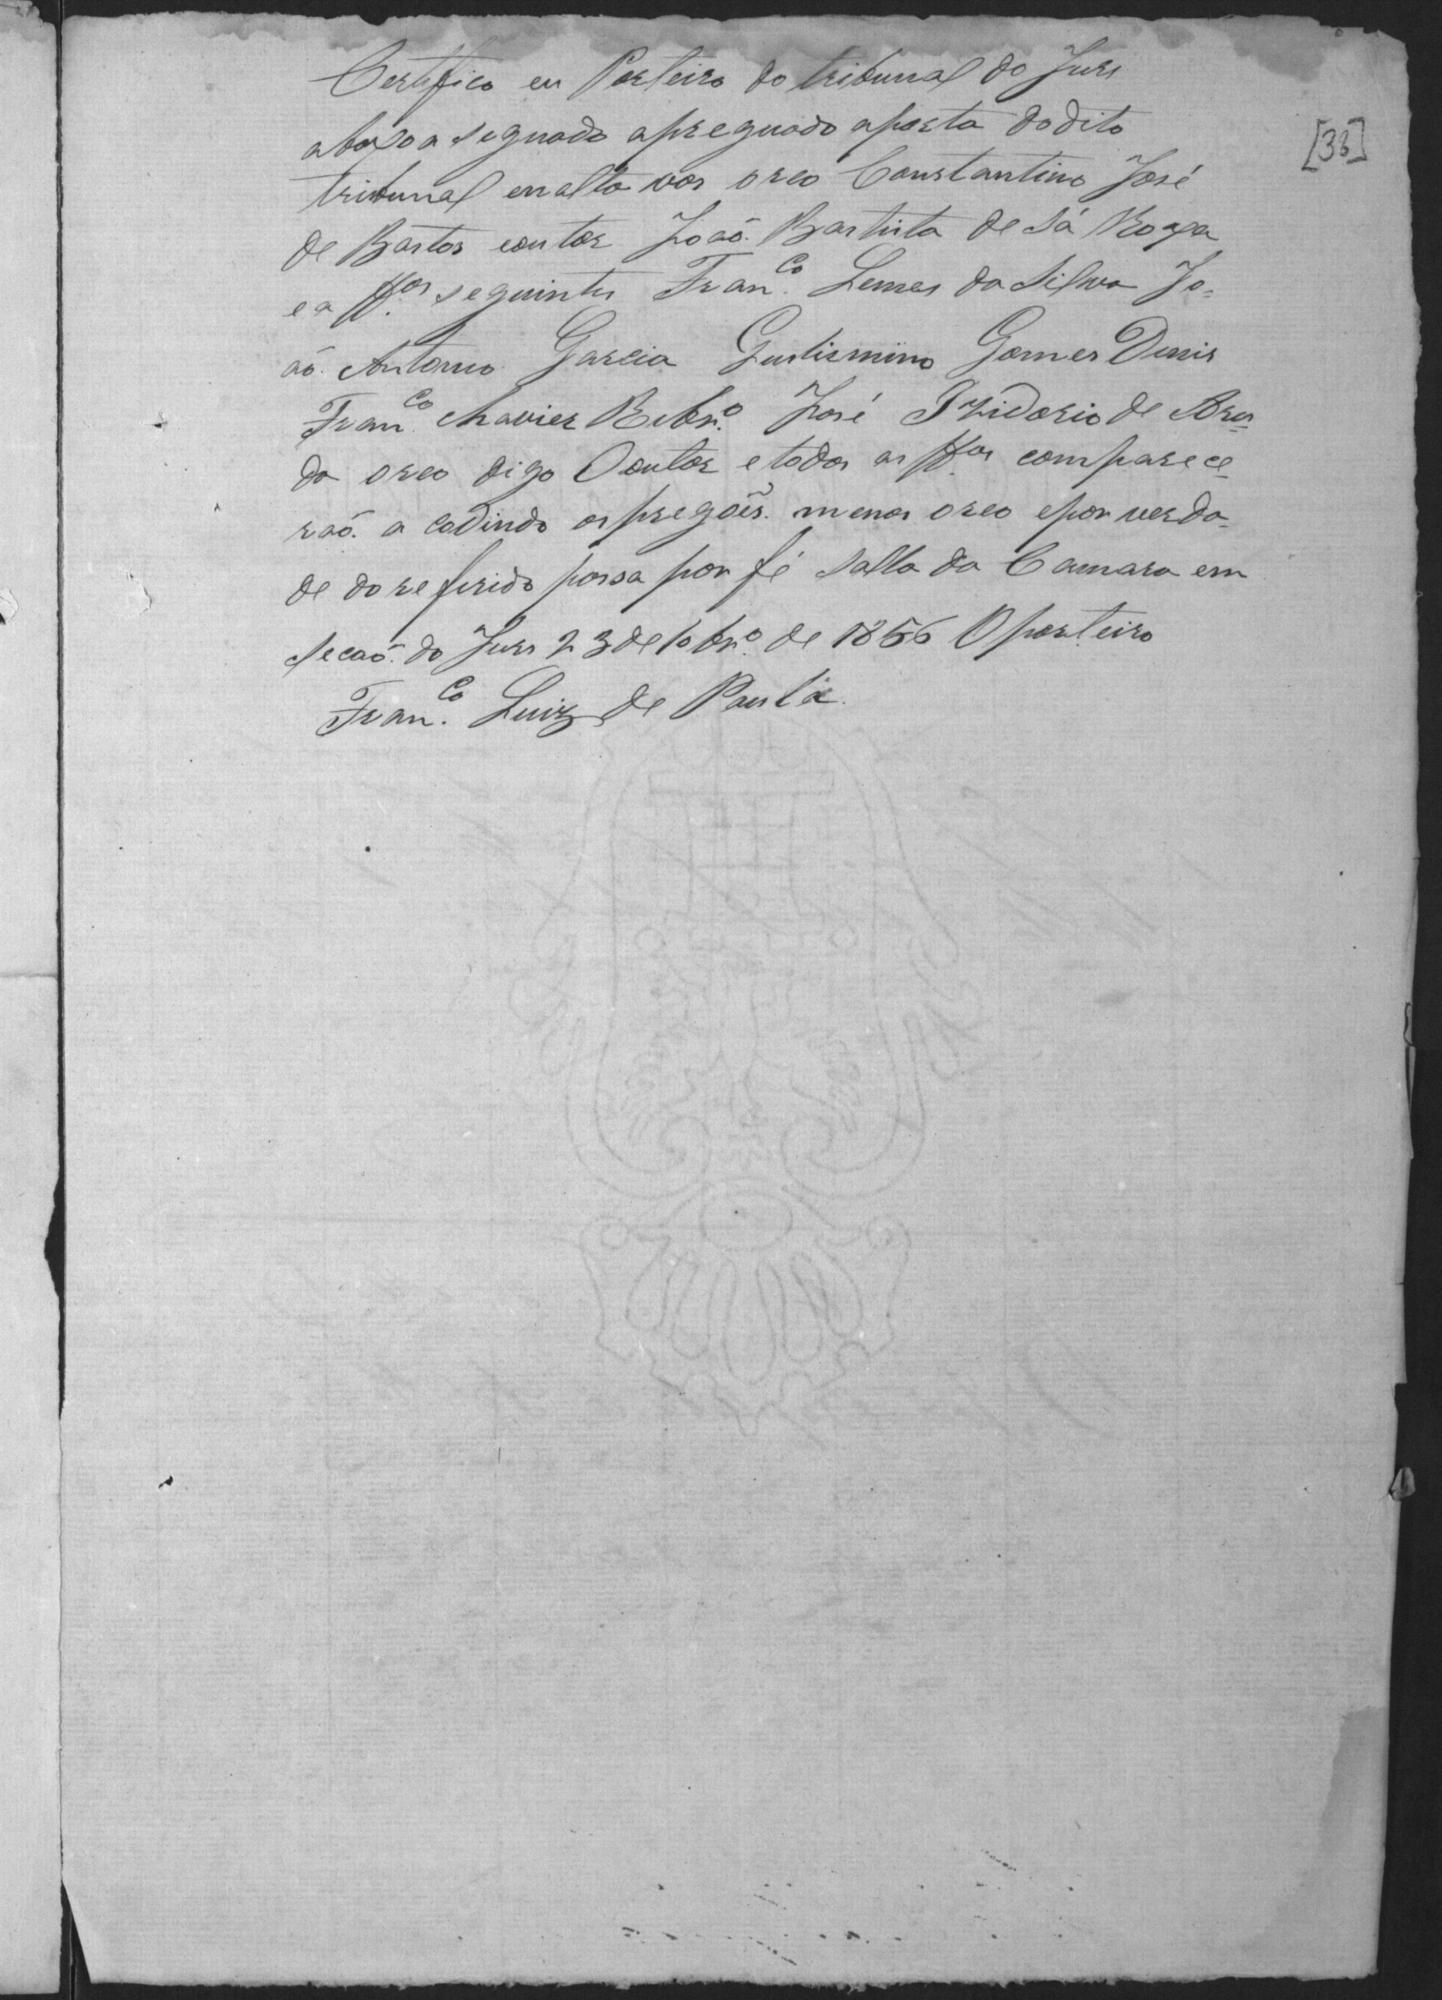 Certifico eu Porteiro do tribunal do Juri
abaxo a segnado apreguado aporta do dito
tribunal em alta vos oreo Constantino José
de Bastos eoutor João Bartista de Sá
[33]
e a tt.as seguintes Fran.co Lemes da Silva Jo-
ão Antonio Garcia Gomes Dinis
Fran.co Chavier Ribr.o José Izidorio de Arru-
da oreo digo Ooutor e todas as tt.as comparece-
rão a codindo os pregões menos oreo epor verda-
de do referido passa por fé Salla da Camara em
secão do Juri 23 de 10br.o de 1856 O porteiro
Fran.co Luiz de Paula